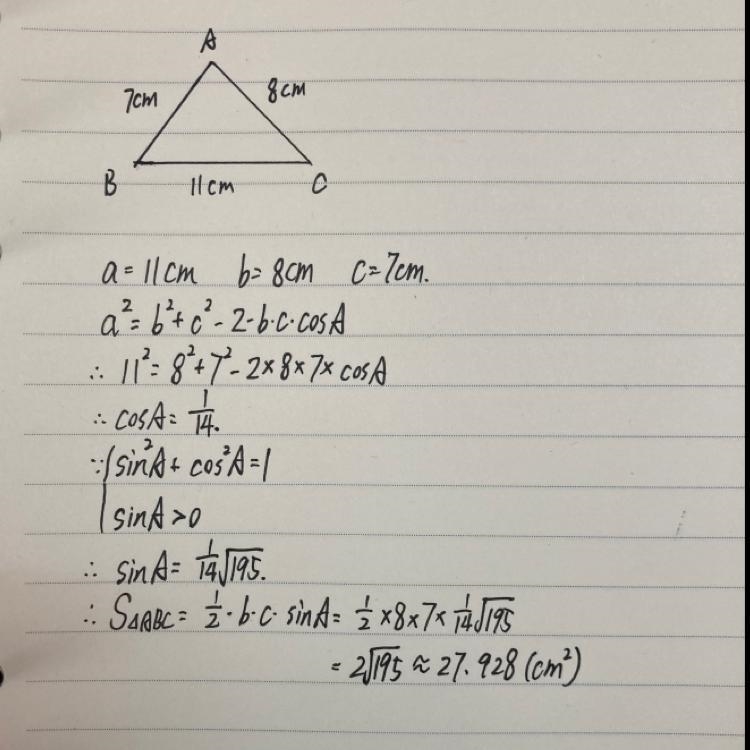 A
7cm 8cm
B 11cm C
a=11cm b=8cm c=7cm.
a²=b²+c²-2·b·c·cosA
∴ 11²=8²+7²-2×8×7×cosA
∴ cosA=1/14.
∵{sin²A+cos²A=1
sinA>0
∴ sinA=1/14√195.
∴ S△ABC=1/2·b·c·sinA=1/2×8×7×1/14√195
=2√195≈27.928(cm²)